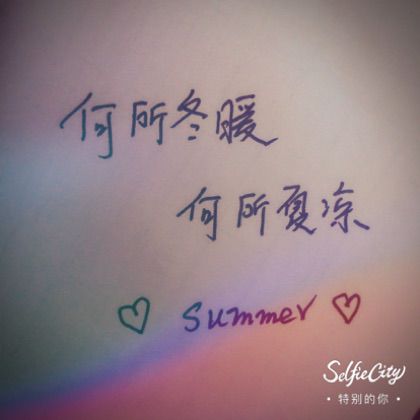 何所冬暖
何所夏凉
♡ summer ♡
SelfieCity
· 特别的你 ·